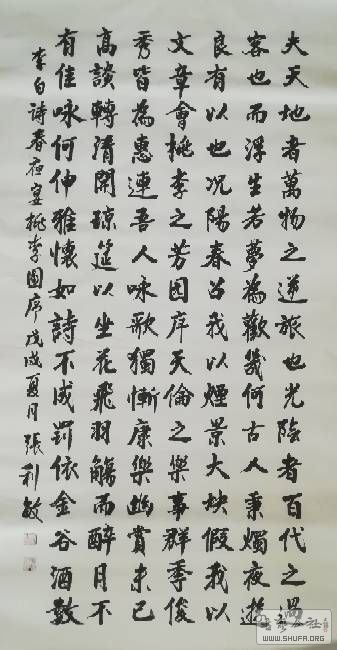 夫天地者萬物之逆旅也光陰者百代之過
客也而浮生若夢為歡幾何古人秉燭夜遊
良有以也況陽春召我以煙景大塊假我以
文章會桃李之芳園序天倫之樂事群季俊
秀皆為惠連吾人咏歌獨慚康樂幽賞未已
高談轉清開琼筵以坐花飛羽觴而醉月不
有佳咏何伸雅懷如詩不成罰依金谷酒數
李白詩春夜宴桃李園序戊戌夏月張利敏
WWW.SHUFA.ORG